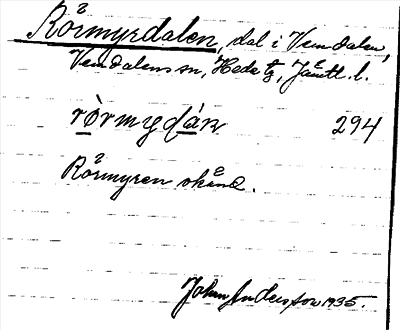 Rörmyrdalen, dal i Vemdalen,
Vemdalens sn, Hede tg, Jämtl. l.
rørmydán 294
Rörmyren okänd.
John Andersson 1935.